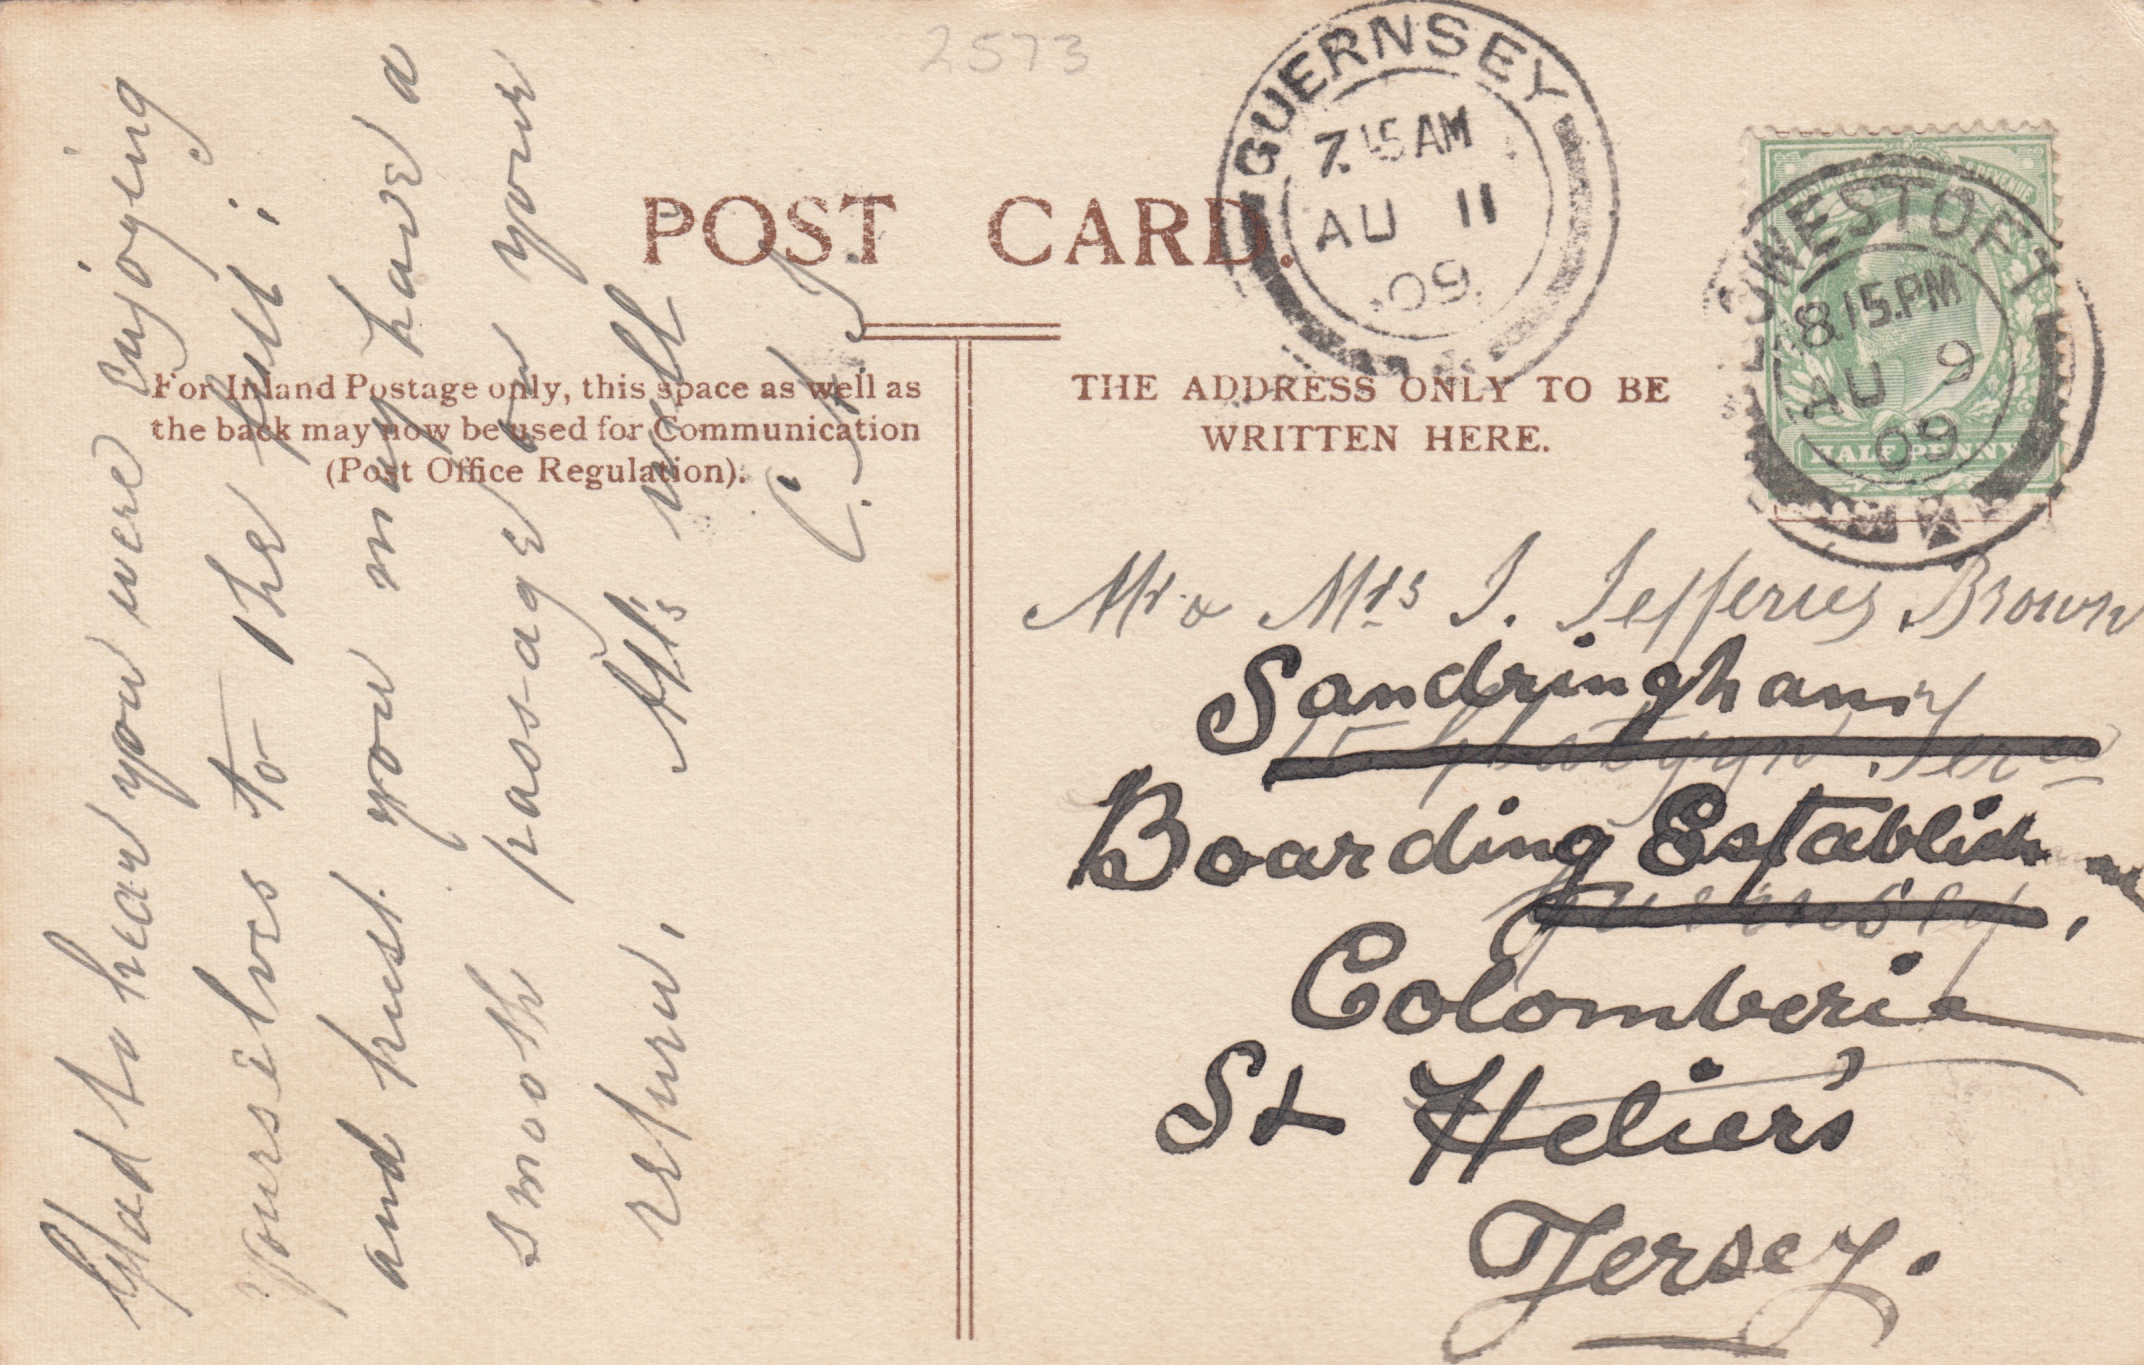 2573
POST CARD.
For Inland Postage only, this space as well as
the back may now be used for Communication
(Post Office Regulation).
THE ADDRESS ONLY TO BE
WRITTEN HERE.
GUERNSEY
7.15 AM
AU 11
09
LOWESTOFT
8.15.PM
AU 9
09
HALF PENNY
Glad to hear you were enjoying
yourselves to the full;
and trust you may have a
smooth passage on your
return. All's well
Mr & Mrs J. Jefferies Brown
Sandringham
Boarding Establish
Guernsey,
Colomberie
St Helier's
Jersey.